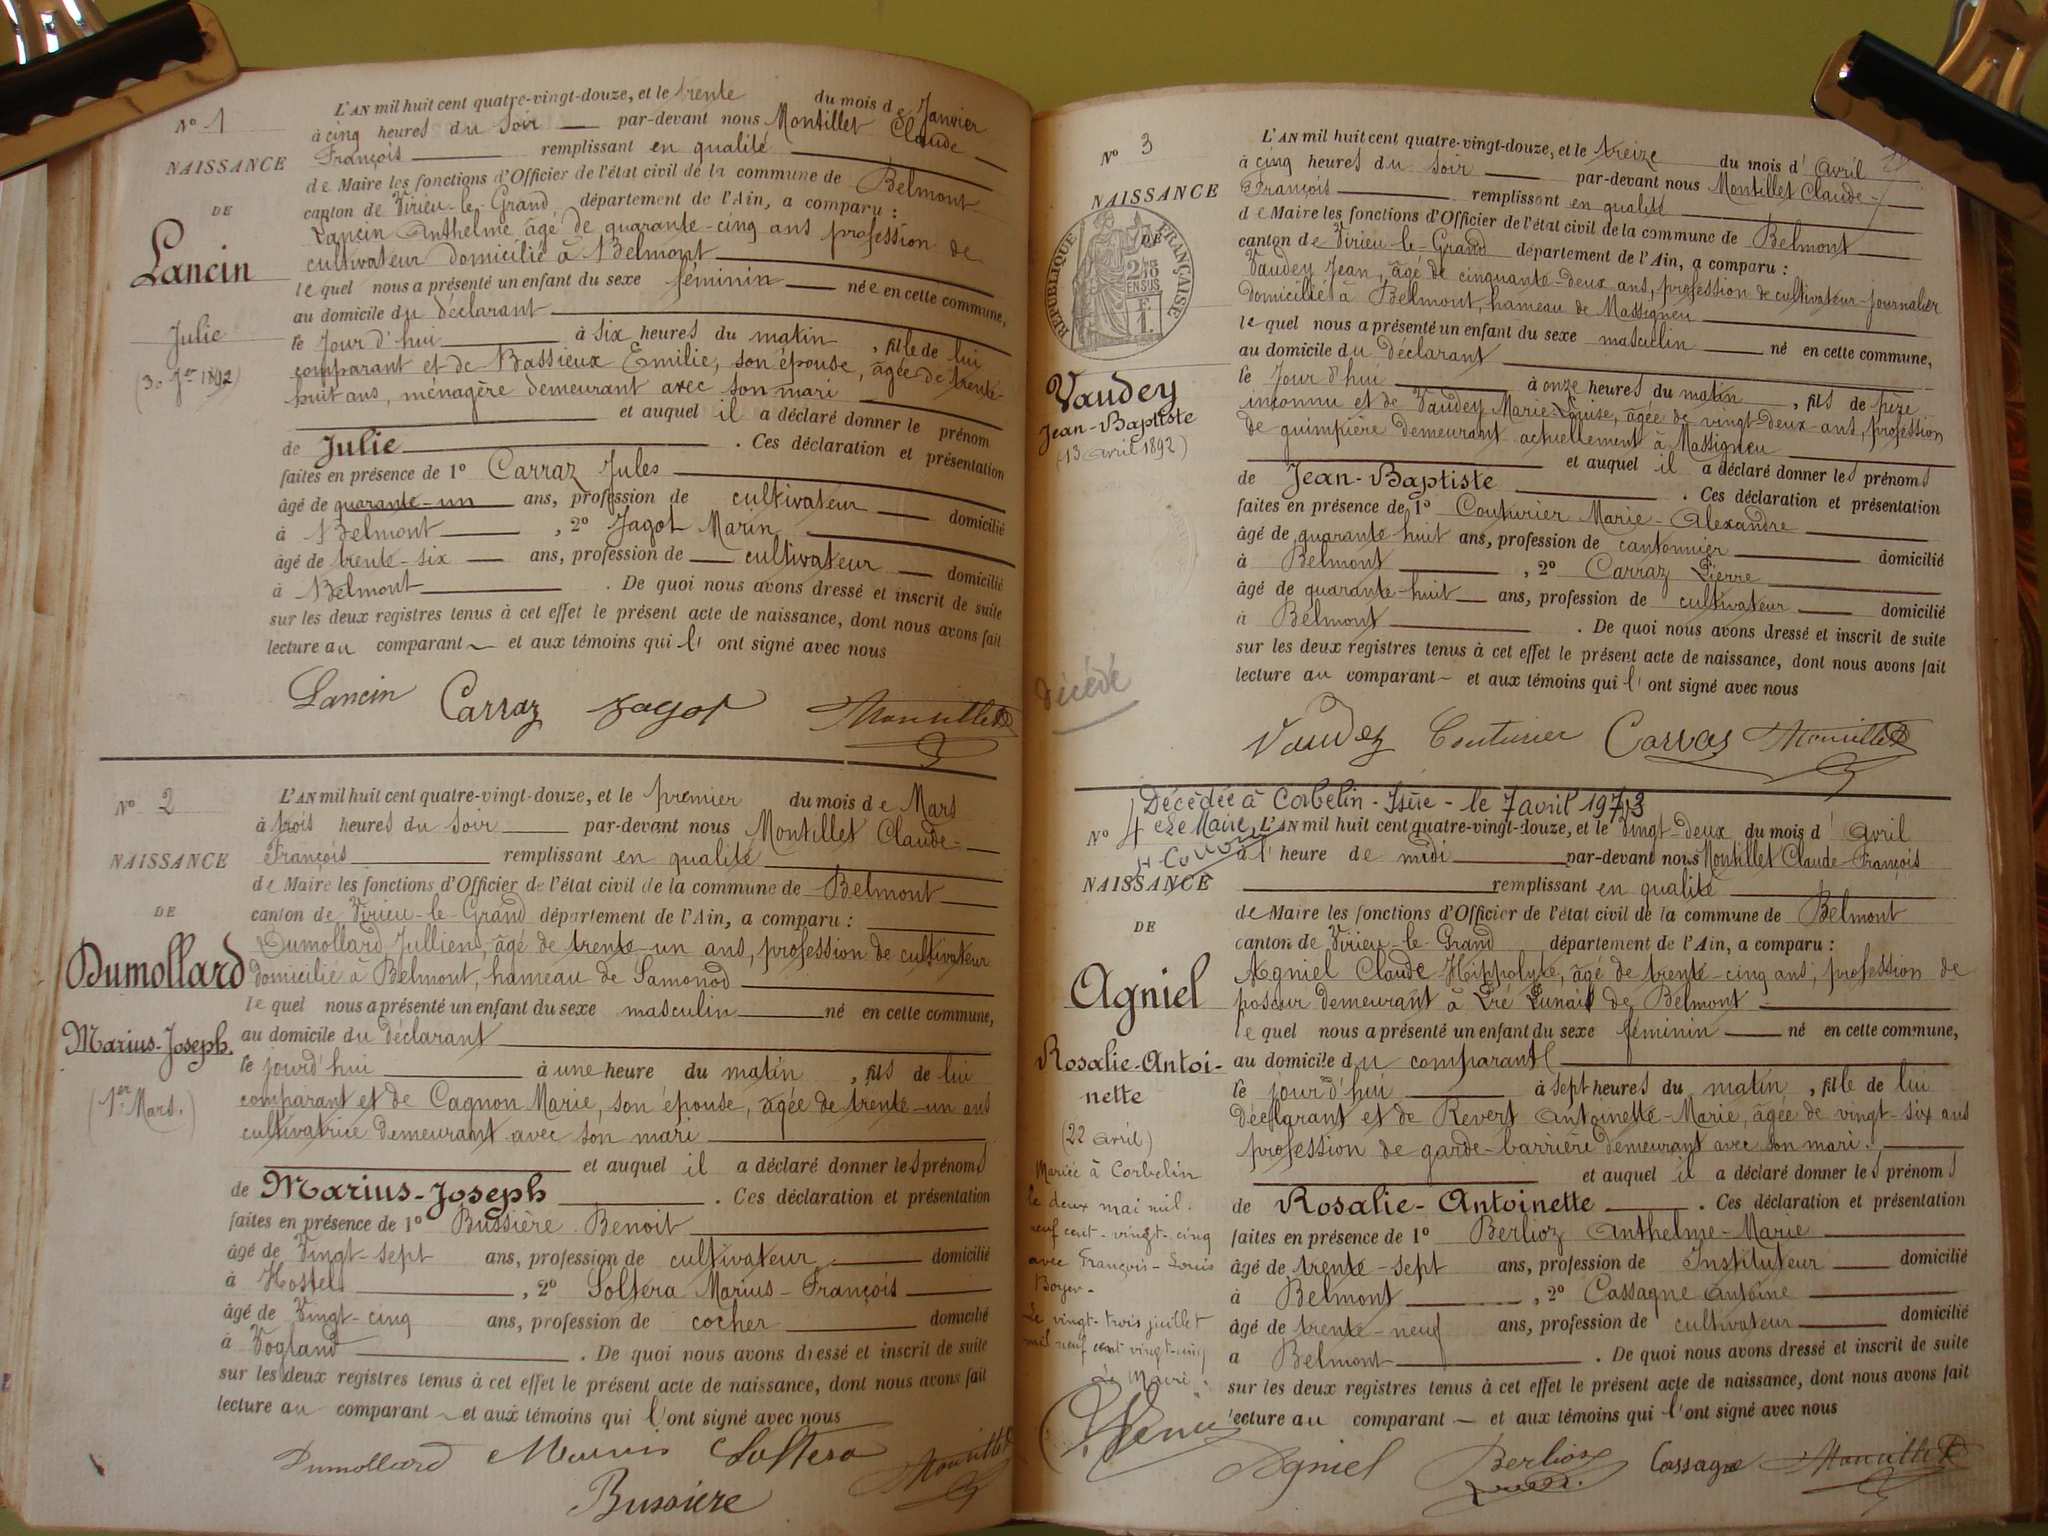 N° 1
NAISSANCE
DE
Lancin
Julie
(30 Jer 1892)
L'AN mil huit cent quatre-vingt-douze, et le trente du mois de Janvier
à cinq heures du soir par-devant nous Montillet Claude
François remplissant en qualité
de Maire les fonctions d'Officier de l'état civil de la commune de Belmont
canton de Virieu-le-Grand, département de l'Ain, a comparu :
Lancin Anthelme âgé de quarante-cinq ans profession de
cultivateur domicilié à Belmont
le quel nous a présenté un enfant du sexe féminin née en cette commune,
au domicile du déclarant
le Jour d'hui à six heures du matin, fille de lui
comparant et de Bassieux Emilie, son épouse, âgée de trente-
huit ans, ménagère demeurant avec son mari
et auquel il a déclaré donner le prénom
de Julie. Ces déclaration et présentation
faites en présence de 1° Carraz Jules
âgé de quarante-un ans, profession de cultivateur domicilié
à Belmont, 2° Jagot Marin
âgé de trente-six ans, profession de cultivateur domicilié
à Belmont. De quoi nous avons dressé et inscrit de suite
sur les deux registres tenus à cet effet le présent acte de naissance, dont nous avons fait
lecture au comparant et aux témoins qui l' ont signé avec nous
Lancin Carraz Jagot Montillet
N° 2
NAISSANCE
DE
Dumollard
Marius-Joseph.
(1er Mars.)
L'AN mil huit cent quatre-vingt-douze, et le premier du mois de Mars
à trois heures du soir par-devant nous Montillet Claude-
François remplissant en qualité
de Maire les fonctions d'Officier de l'état civil de la commune de Belmont
canton de Virieu-le-Grand département de l'Ain, a comparu :
Dumollard Jullien, âgé de trente-un ans, profession de cultivateur
domicilié à Belmont, hameau de Samonod
le quel nous a présenté un enfant du sexe masculin né en cette commune,
au domicile du déclarant
le jourd'hui à une heure du matin, fils de lui
comparant et de Cagnon Marie, son épouse, âgée de trente-un ans
cultivatrice demeurant avec son mari
et auquel il a déclaré donner les prénoms
de Marius-Joseph. Ces déclaration et présentation
faites en présence de 1° Bussière Benoit
âgé de Vingt-sept ans, profession de cultivateur domicilié
à Hostel, 2° Soltera Marius-François
âgé de Vingt-cinq ans, profession de cocher domicilié
à Vogland. De quoi nous avons dressé et inscrit de suite
sur les deux registres tenus à cet effet le présent acte de naissance, dont nous avons fait
lecture au comparant et aux témoins qui l'ont signé avec nous
Dumollard Marius Soltera Montillet
Bussiere
N° 3
NAISSANCE
DE
RÉPUBLIQUE FRANÇAISE
2/10
EN SUS
F. 1.
Vaudey
Jean-Baptiste
(13 avril 1892)
Décédé
L'AN mil huit cent quatre-vingt-douze, et le treize du mois d'Avril
à cinq heures du soir par-devant nous Montillet Claude-
François remplissant en qualité
de Maire les fonctions d'Officier de l'état civil de la commune de Belmont
canton de Virieu-le-Grand département de l'Ain, a comparu :
Vaudey Jean, âgé de cinquante-deux ans, profession de cultivateur-journalier
domicilié à Belmont, hameau de Massigneu
le quel nous a présenté un enfant du sexe masculin né en cette commune,
au domicile du déclarant
le Jour d'hui à onze heures du matin, fils de père
inconnu et de Vaudey Marie-Louise, âgée de vingt-deux-ans, profession
de guimpière demeurant actuellement à Massigneu
et auquel il a déclaré donner les prénoms
de Jean-Baptiste. Ces déclaration et présentation
faites en présence de 1° Couturier Marie-Alexandre
âgé de quarante-huit ans, profession de cantonnier domicilié
à Belmont, 2° Carraz Pierre
âgé de quarante-huit ans, profession de cultivateur domicilié
à Belmont. De quoi nous avons dressé et inscrit de suite
sur les deux registres tenus à cet effet le présent acte de naissance, dont nous avons fait
lecture au comparant et aux témoins qui l' ont signé avec nous
Vaudey Couturier Carraz Montillet
Décédée à Corbelin - Isère - le 7 avril 1973
Le Maire,
N° 4
NAISSANCE
DE
Agniel
Rosalie-Antoi-
nette
(22 avril)
Mariée à Corbelin
le deux mai mil
neuf cent-vingt-cinq
avec François-Louis
Boyer-
Le vingt-trois juillet
mil neuf cent vingt-cinq
L'AN mil huit cent quatre-vingt-douze, et le Vingt-deux du mois d'Avril
à l'heure de midi par-devant nous Montillet Claude-François
remplissant en qualité
de Maire les fonctions d'Officier de l'état civil de la commune de Belmont
canton de Virieu-le-Grand département de l'Ain, a comparu :
Agniel Claude Hippolyte, âgé de trente-cinq ans, profession de
poseur demeurant à Pré Lunair de Belmont
le quel nous a présenté un enfant du sexe féminin né en cette commune,
au domicile du comparant
le jourd'hui à sept heures du matin, fille de lui
déclarant et de Revert Antoinette-Marie, âgée de vingt-six ans
profession de garde-barrière demeurant avec son mari.
et auquel il a déclaré donner les prénoms
de Rosalie-Antoinette. Ces déclaration et présentation
faites en présence de 1° Berlioz Anthelme-Marie
âgé de trente-sept ans, profession de Instituteur domicilié
à Belmont, 2° Cassagne Antoine
âgé de trente-neuf ans, profession de cultivateur domicilié
à Belmont. De quoi nous avons dressé et inscrit de suite
sur les deux registres tenus à cet effet le présent acte de naissance, dont nous avons fait
lecture au comparant et aux témoins qui l'ont signé avec nous
Agniel Berlioz Cassagne Montillet